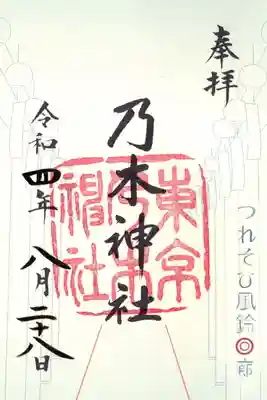 奉拝
つれそひ風鈴回廊
乃木神社
東京
乃木
神社
令和四年八月二十八日